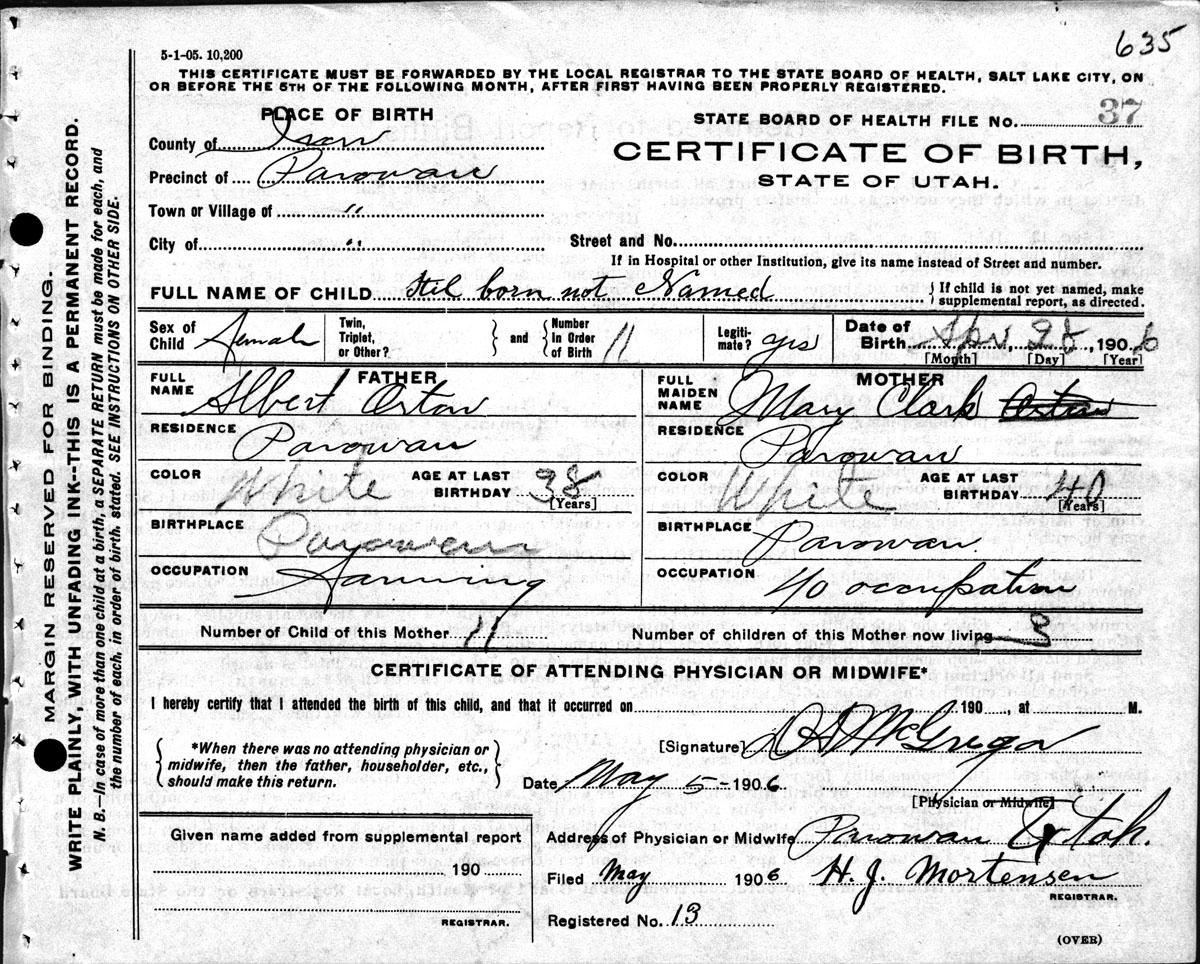 635
5-1-05. 10,200
THIS CERTIFICATE MUST BE FORWARDED BY THE LOCAL REGISTRAR TO THE STATE BOARD OF HEALTH, SALT LAKE CITY, ON
OR BEFORE THE 5TH OF THE FOLLOWING MONTH, AFTER FIRST HAVING BEEN PROPERLY REGISTERED.
PLACE OF BIRTH
STATE BOARD OF HEALTH FILE No. 37
County of Iron
CERTIFICATE OF BIRTH,
Precinct of Parowan
STATE OF UTAH.
Town or Village of "
City of "
Street and No.
If in Hospital or other Institution, give its name instead of Street and number.
FULL NAME OF CHILD Stil born not Named
{ If child is not yet named, make
supplemental report, as directed.
Sex of Child Female
Twin, Triplet, or Other? } and { Number In Order of Birth 11
Legiti- mate? yes
Date of Birth Apr, 28, 1906
[Month] [Day] [Year]
FATHER
FULL NAME Albert Orton
RESIDENCE Parowan
COLOR White AGE AT LAST BIRTHDAY 38 [Years]
BIRTHPLACE Parowan
OCCUPATION Farming
MOTHER
FULL MAIDEN NAME Mary Clark Orton
RESIDENCE Parowan
COLOR White AGE AT LAST BIRTHDAY 40 [Years]
BIRTHPLACE Parowan.
OCCUPATION no occupation
Number of Child of this Mother 11 Number of children of this Mother now living 8
CERTIFICATE OF ATTENDING PHYSICIAN OR MIDWIFE*
I hereby certify that I attended the birth of this child, and that it occurred on 190 , at M.
{ *When there was no attending physician or
midwife, then the father, householder, etc.,
should make this return. }
[Signature] McGregor
Date May 5- 1906
[Physician or Midwife]
Given name added from supplemental report
190
REGISTRAR.
Address of Physician or Midwife Parowan Utah.
Filed May 1906 H. J. Mortensen
REGISTRAR.
Registered No. 13
(OVER)
MARGIN RESERVED FOR BINDING.
WRITE PLAINLY, WITH UNFADING INK--THIS IS A PERMANENT RECORD.
N. B.—In case of more than one child at a birth, a SEPARATE RETURN must be made for each, and
the number of each, in order of birth, stated. SEE INSTRUCTIONS ON OTHER SIDE.